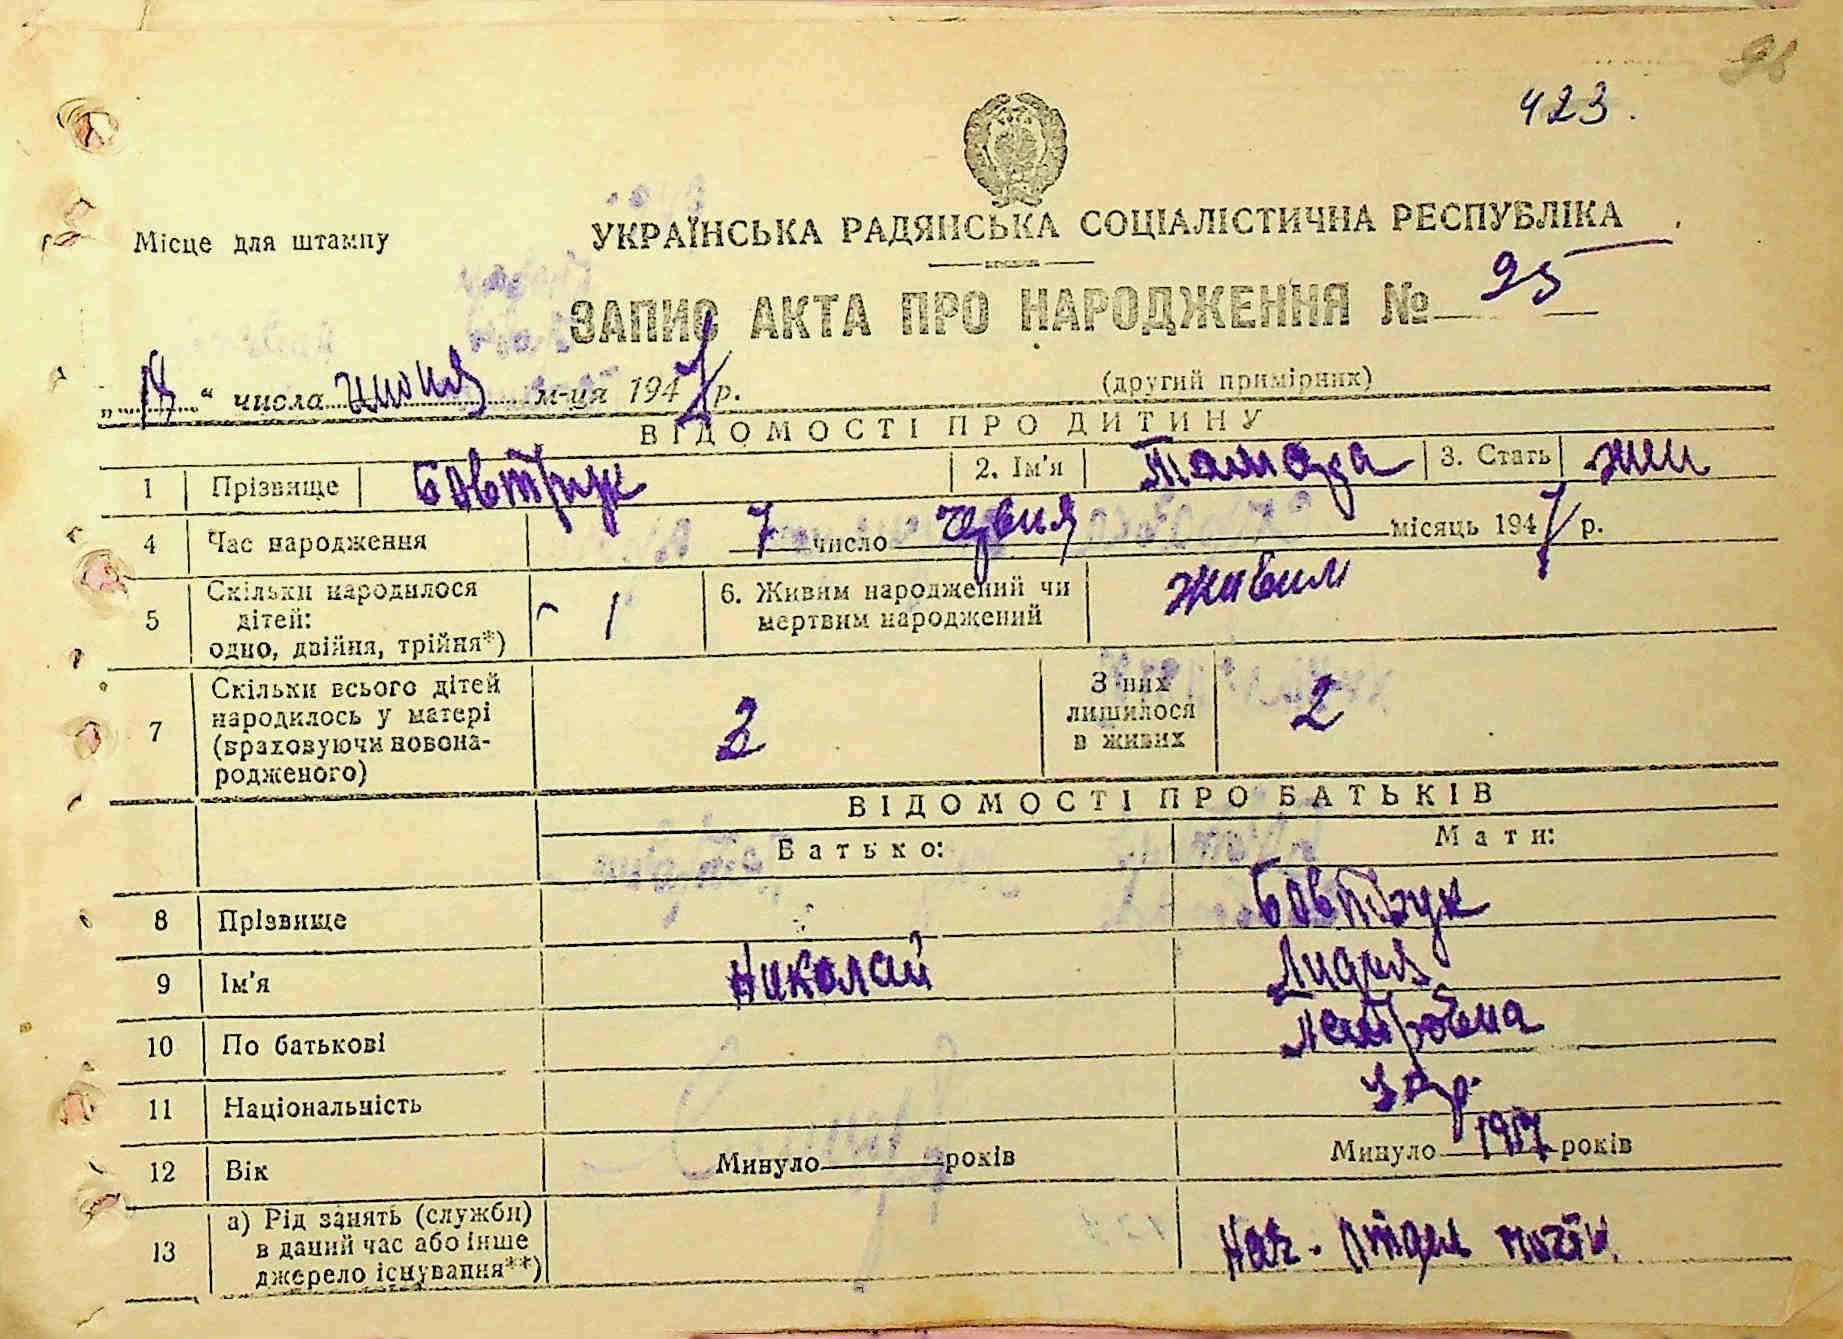 423.
Місце для штампу
УКРАЇНСЬКА РАДЯНСЬКА СОЦІАЛІСТИЧНА РЕСПУБЛІКА
ЗАПИС АКТА ПРО НАРОДЖЕННЯ № 25
(другий примірник)
„ “ числа июня м-ця 1947 р.
ВІДОМОСТІ ПРО ДИТИНУ
1 Прізвище Бовтрук 2. Ім'я Тамара 3. Стать жен
4 Час народження 7 число місяць 1947 р.
5 Скільки народилося дітей: одно, двійня, трійня*) 1 6. Живим народжений чи мертвим народжений живим
7 Скільки всього дітей народилось у матері (враховуючи новонародженого) 2 З них лишилося в живих 2
ВІДОМОСТІ ПРО БАТЬКІВ
Батько: Мати:
8 Прізвище Бовтрук
9 Ім'я Николай Лидия
10 По батькові Петровна
11 Національність Укр.
12 Вік Минуло років Минуло 1917 років
13 а) Рід занять (служби) в даний час або інше джерело існування**) Нач.